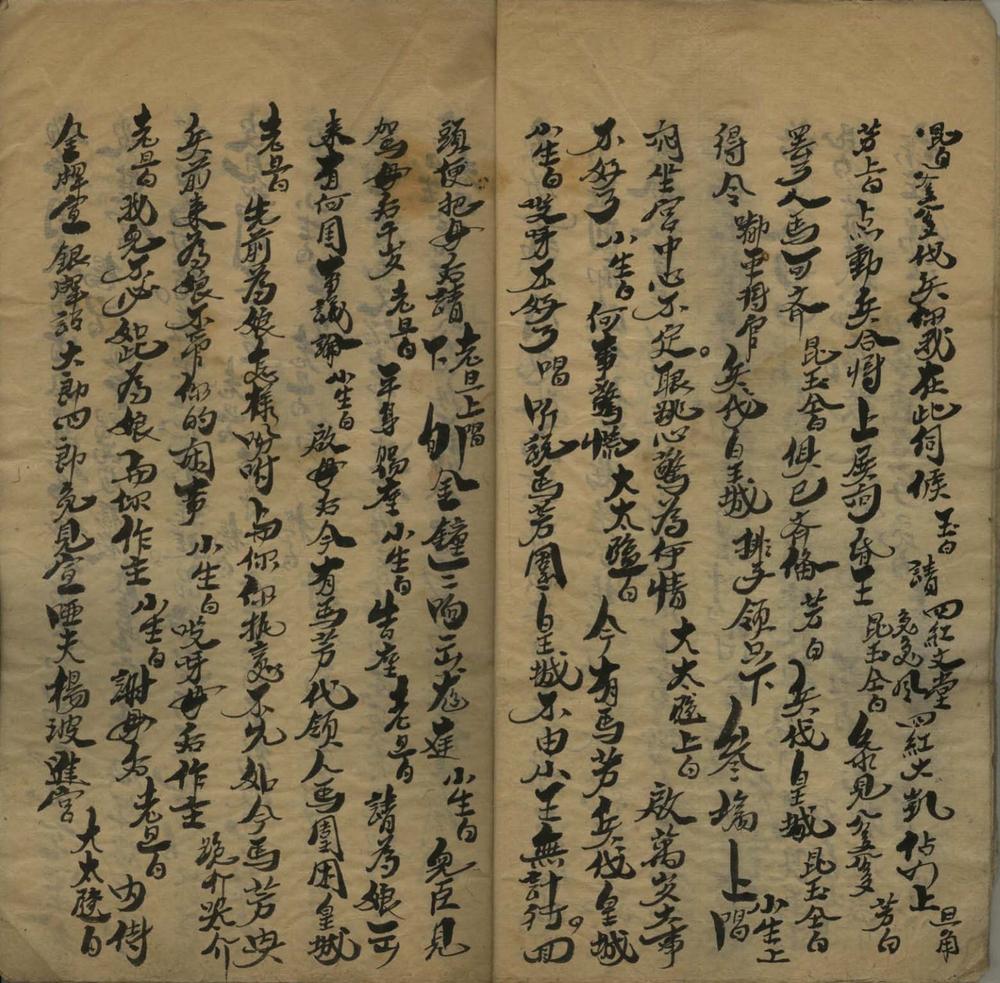 昆白 爹爹伐兵都我在此伺候 玉白 請 四紅文堂 急急风 四紅大凱 占門上 旦角
芳上白 点動兵合將 上 展前香王 昆玉仝白 參見爹爹 芳白
墨了人馬可齊 昆玉仝白 俱已齊備 芳白 兵伐皇城 昆玉仝白
得令 兵伐自主城 排手領 只下 叁塲 上唱 小生上
坐宮中心不定。眼跳心驚為何情 大太監上白 啟萬岁大事
不好了 小生白 何事驚慌 大太監白 今有馬芳兵伐皇城
小生白 哎呀不好了 唱 听説馬芳圍皇城 不由小王無計行。回
頭便把母后請 下 老旦上唱 白 金鐘 小生白 兒臣見
驾母后千岁 老旦白 平身 賜座 小生白 告座 老旦白 請為娘
来有何國事議論 小生白 啟母后 今有馬芳代領人馬圍困皇城
老旦白 先前為娘怎樣吩咐与你 你执意不允 如今馬芳興
兵前来 為娘不管你的闲事 小生白 哎呀母后作主 跪介哭介
老旦白 我兒不必如此 為娘与你作主 小生白 謝母后 老旦白 内侍
金牌宣 銀牌詔 大郎四郎免見 宣 夫楊波進宮 大太監白